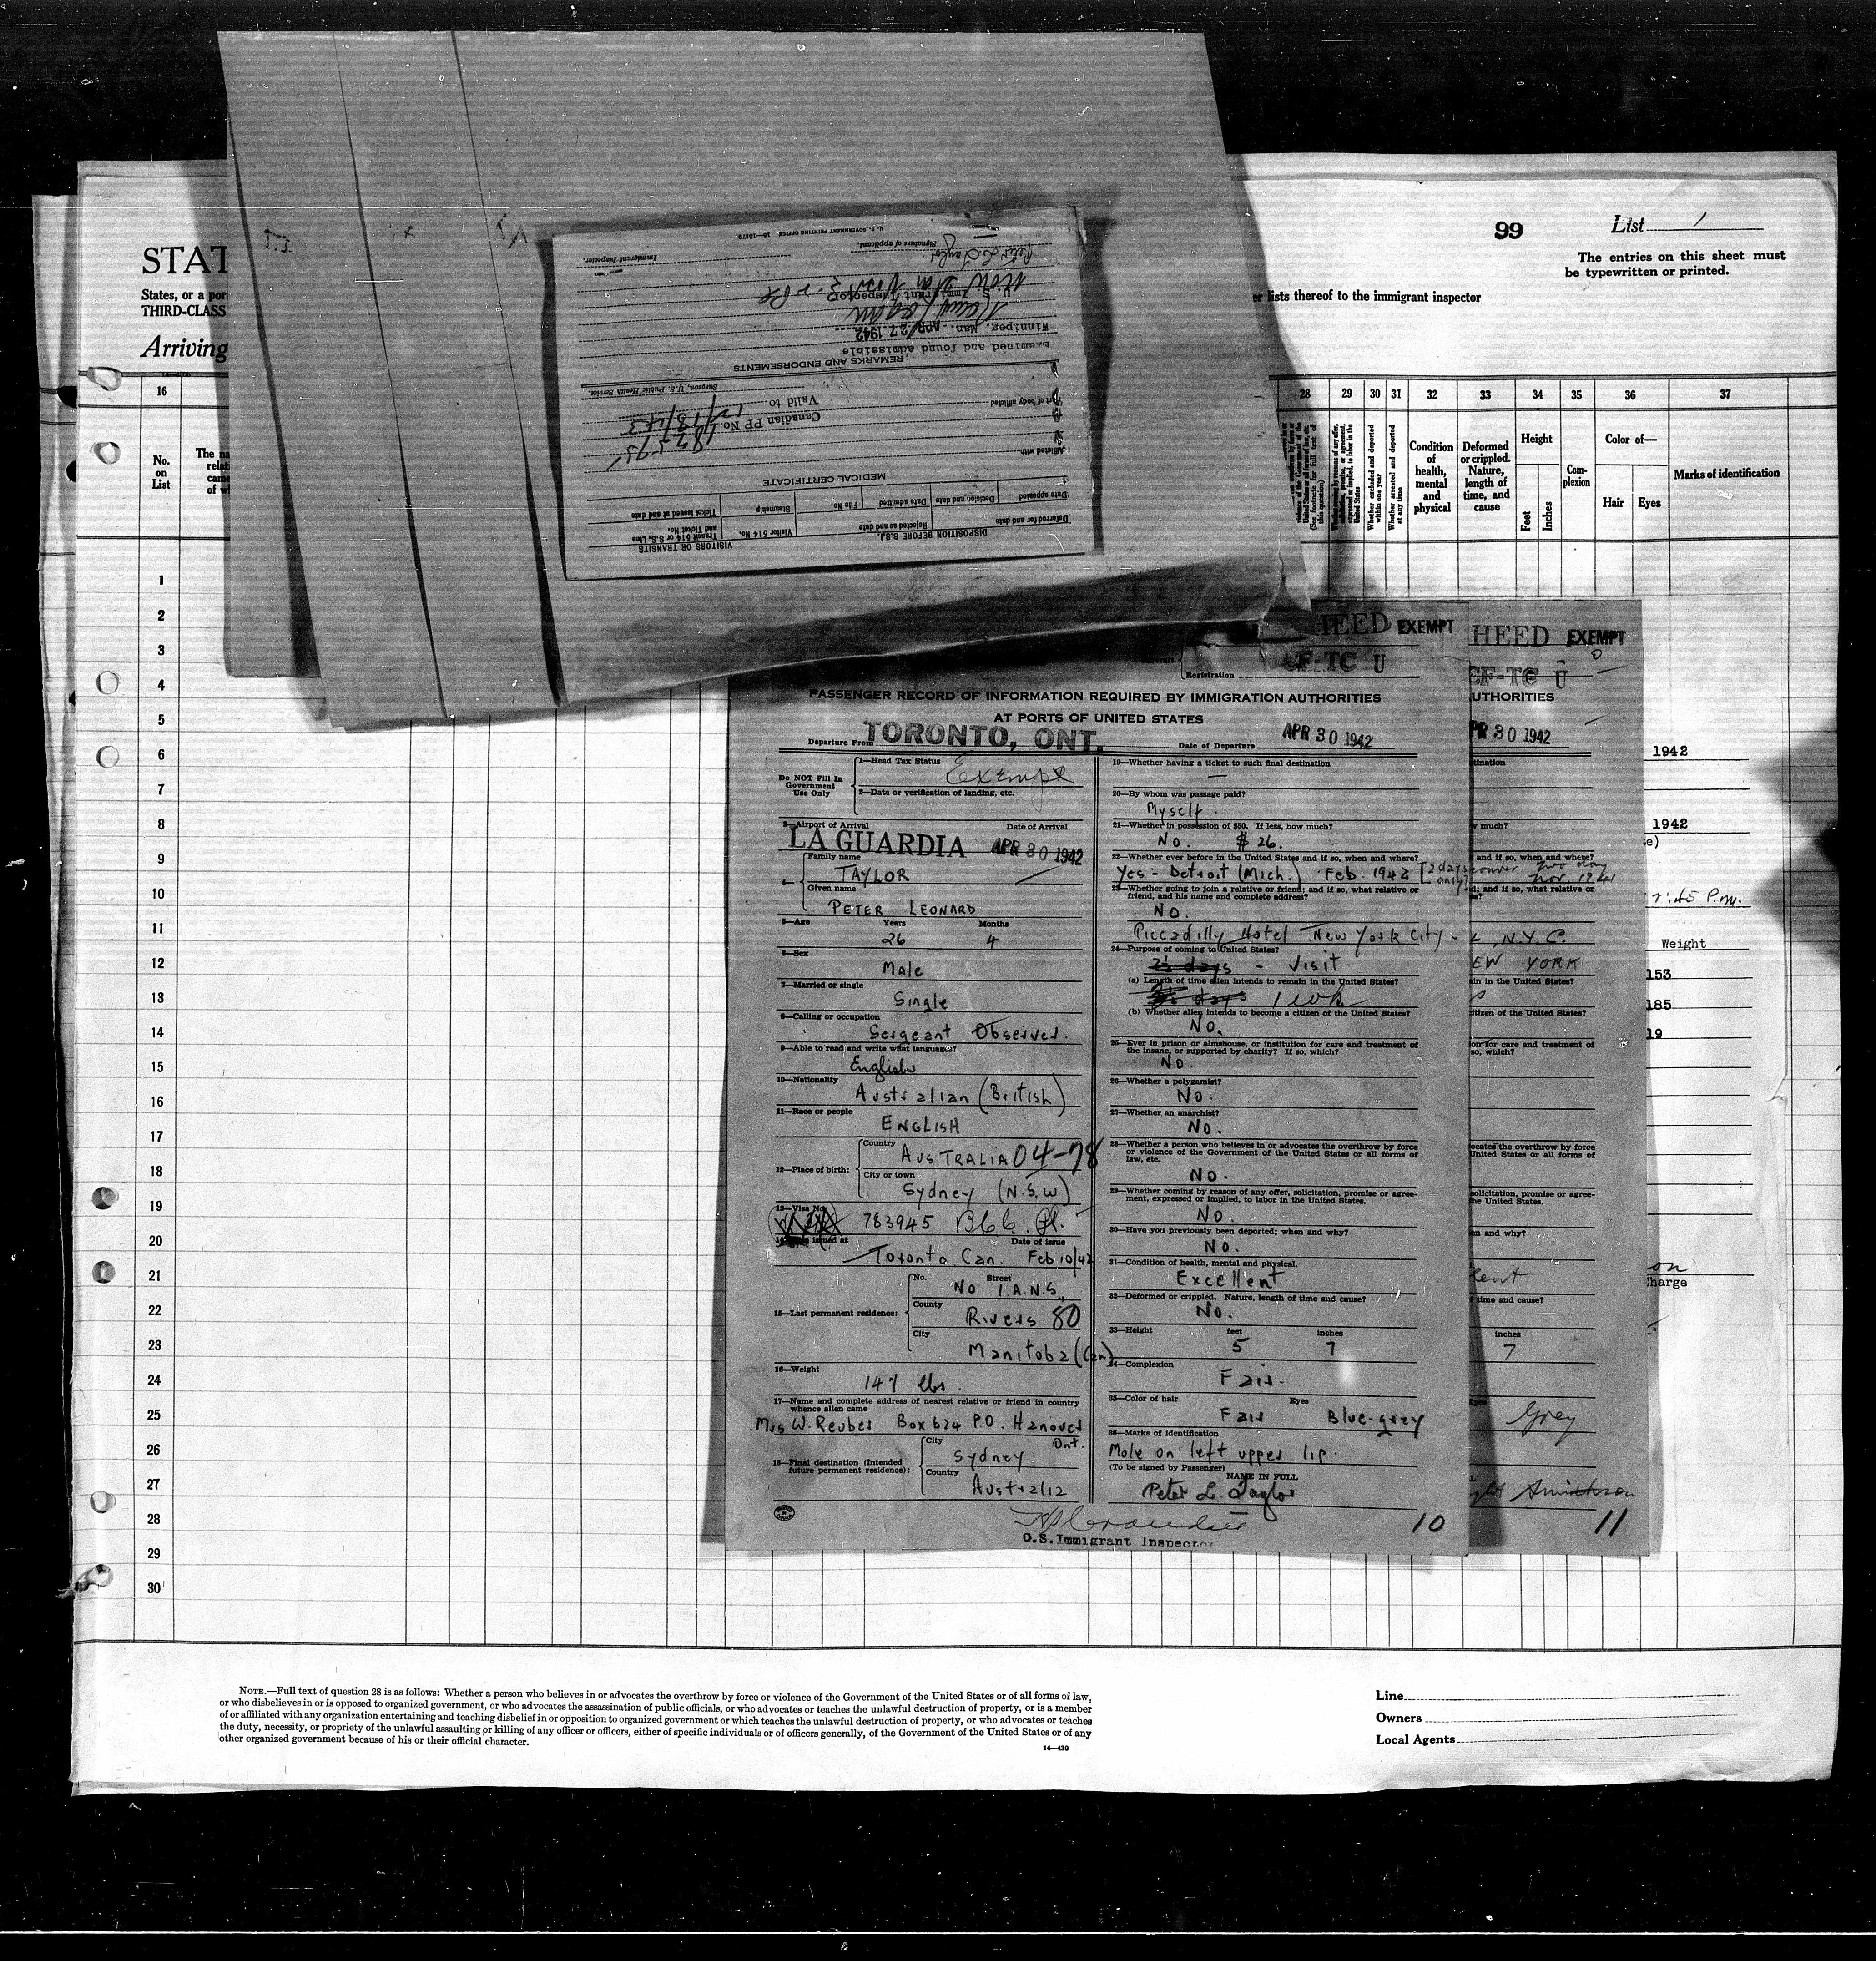 STAT
States, or a por
THIRD-CLASS
Arriving
99
List 1
The entries on this sheet must
be typewritten or printed.
er lists thereof to the immigrant inspector
16
28 29 30 31 32 33 34 35 36 37
No.
on
List
Whether excluded and deported within one year
Whether arrested and deported at any time
Condition of health, mental and physical
Deformed or crippled. Nature, length of time, and cause
Height
Feet
Inches
Com-
plexion
Color of—
Hair
Eyes
Marks of identification
1
2
3
4
5
6
7
8
9
10
11
12
13
14
15
16
17
18
19
20
21
22
23
24
25
26
27
28
29
30
VISITORS OR TRANSITS
DISPOSITION BEFORE B.S.I.
Deferred for and date
Rejected as and date
Visitor 514 No.
Transit 514 or S.S. Line and Ticket No.
Date appealed
Decision and date
Date admitted
File No.
Steamship
Ticket issued at and date
MEDICAL CERTIFICATE
Afflicted with
Part of body afflicted
Canadian PP No.
Valid to 12/13/43
Surgeon, U.S. Public Health Service.
REMARKS AND ENDORSEMENTS
Examined and found admissible
Winnipeg, Man. APR 27 1942
U S Immigrant Inspector
Peter L. Taylor
Signature of applicant.
Immigrant Inspector.
U. S. GOVERNMENT PRINTING OFFICE 16—18179
HEED EXEMPT
Registration CF-TC U
PASSENGER RECORD OF INFORMATION REQUIRED BY IMMIGRATION AUTHORITIES
AT PORTS OF UNITED STATES
Departure From TORONTO, ONT. Date of Departure APR 30 1942
Do NOT Fill In
Government
Use Only
1—Head Tax Status Exempt
2—Data or verification of landing, etc.
3—Airport of Arrival Date of Arrival
LA GUARDIA APR 30 1942
4—
Family name
TAYLOR
Given name
PETER LEONARD
5—Age Years Months
26 4
6—Sex
Male
7—Married or single
Single
8—Calling or occupation
Sergeant Observer.
9—Able to read and write what language?
English
10—Nationality
Australian (British)
11—Race or people
ENGLISH
12—Place of birth:
Country
AUSTRALIA 04-78
City or town
Sydney (N.S.W)
13—Visa No.
783945
14— issued at Date of issue
Toronto Can. Feb 10/42
15—Last permanent residence:
No. Street
No 1 A.N.S.
County
Rivers 80
City
Manitoba (Can)
16—Weight
147 lbs.
17—Name and complete address of nearest relative or friend in country
whence alien came
Mrs W. Reuber Box 624 P.O. Hanover
Ont.
18—Final destination (Intended
future permanent residence):
City
Sydney
Country
Australia
19—Whether having a ticket to such final destination
—
20—By whom was passage paid?
Myself.
21—Whether in possession of $50. If less, how much?
No. $26.
22—Whether ever before in the United States and if so, when and where?
Yes - Detroit (Mich.) Feb. 1942 [2 days only]
23—Whether going to join a relative or friend; and if so, what relative or
friend, and his name and complete address?
No.
Piccadilly Hotel New York City.
24—Purpose of coming to United States?
- Visit
(a) Length of time alien intends to remain in the United States?
1 wk
(b) Whether alien intends to become a citizen of the United States?
No.
25—Ever in prison or almshouse, or institution for care and treatment of
the insane, or supported by charity? If so, which?
No.
26—Whether a polygamist?
No.
27—Whether an anarchist?
No.
28—Whether a person who believes in or advocates the overthrow by force
or violence of the Government of the United States or all forms of
law, etc.
No.
29—Whether coming by reason of any offer, solicitation, promise or agree-
ment, expressed or implied, to labor in the United States.
No.
30—Have you previously been deported; when and why?
No.
31—Condition of health, mental and physical.
Excellent
32—Deformed or crippled. Nature, length of time and cause?
No.
33—Height feet inches
5 7
34—Complexion
Fair.
35—Color of hair Eyes
Fair Blue-grey
36—Marks of identification
Mole on left upper lip.
(To be signed by Passenger)
NAME IN FULL
Peter L. Taylor
U.S. Immigrant Inspector
10
HEED EXEMPT
CF-TC U
UTHORITIES
PR 30 1942
tination
much?
and if so, when and where?
Nov. 1941
d; and if so, what relative or
N.Y.C.
EW YORK
ain in the United States?
citizen of the United States?
ion for care and treatment of
so, which?
ocates the overthrow by force
United States or all forms of
solicitation, promise or agree-
the United States.
en and why?
lent
time and cause?
inches
7
Eyes
Grey
11
1942
1942
P.M.
Weight
153
185
19
harge
NOTE.—Full text of question 28 is as follows: Whether a person who believes in or advocates the overthrow by force or violence of the Government of the United States or of all forms of law,
or who disbelieves in or is opposed to organized government, or who advocates the assassination of public officials, or who advocates or teaches the unlawful destruction of property, or is a member
of or affiliated with any organization entertaining and teaching disbelief in or opposition to organized government or which teaches the unlawful destruction of property, or who advocates or teaches
the duty, necessity, or propriety of the unlawful assaulting or killing of any officer or officers, either of specific individuals or of officers generally, of the Government of the United States or of any
other organized government because of his or their official character.
14—430
Line
Owners
Local Agents